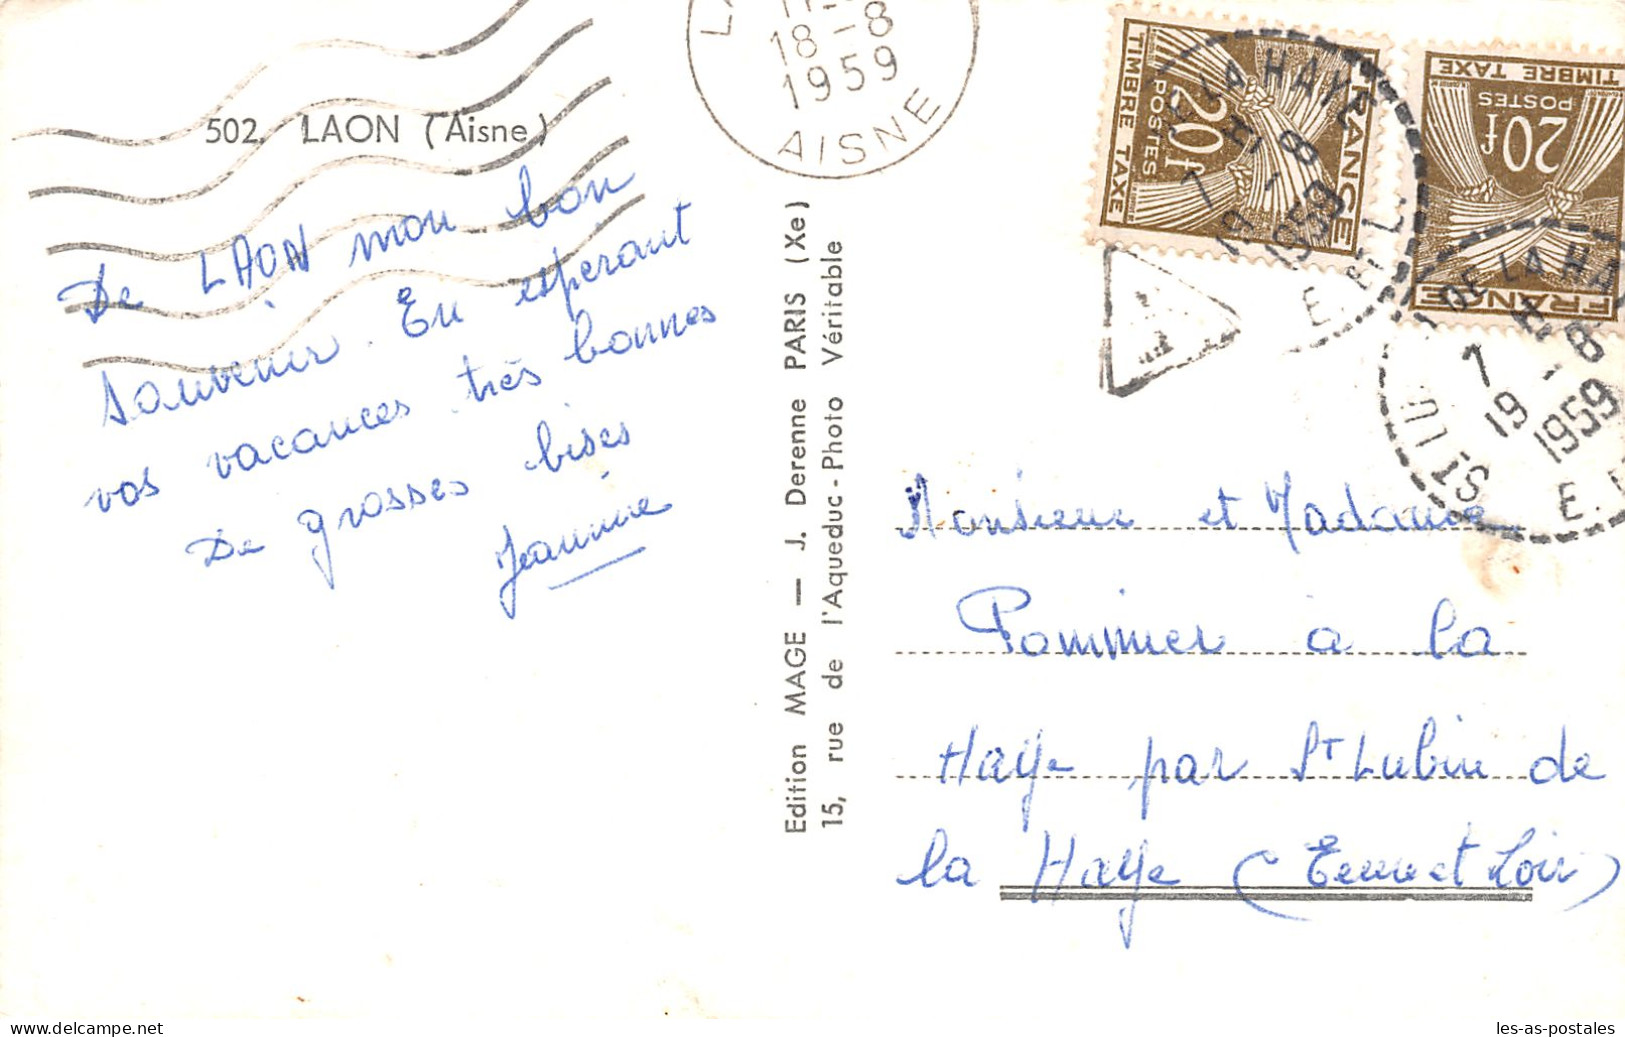 502. LAON (Aisne)
De LAON mon bon
souvenir. En esperant
vos vacances très bonnes
De grosses bises
Jeannine
Edition MAGE — J. Derenne PARIS (Xe)
15, rue de l'Aqueduc - Photo Véritable
18-8
1959
AISNE
FRANCE
20f
POSTES
TIMBRE TAXE
FRANCE
20f
POSTES
TIMBRE TAXE
DE LA HAYE
7 H
19 - 8
1959
E. ET L.
ST LU
DE LA HA
7 H
19 - 8
1959
E.
Monsieur et Madame
Pommier a la
Haye par St Lubin de
la Haye (Eure et Loir)
les-as-postales.delcampe.net
les-as-postales